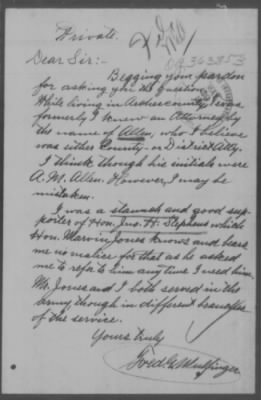 Private.
OG 363853
Dear Sir:-
Begging your pardon
for asking you the question.
While living in Archer county, Texas
formerly I knew an Attorney by
the name of Allen, who I believe
was either County- or District Atty.
I think though his initials were
A. M. Allen. However, I may be
mistaken.
I was a staunch and good sup-
porter of Hon. Jno. H. Stephens which
Hon. Marvin Jones knows and bears
me no malice for that as he asked
me to refer to him any time I need him.
Mr. Jones and I both served in the
Army though in different branches
of the service.
Yours truly,
Fred G.